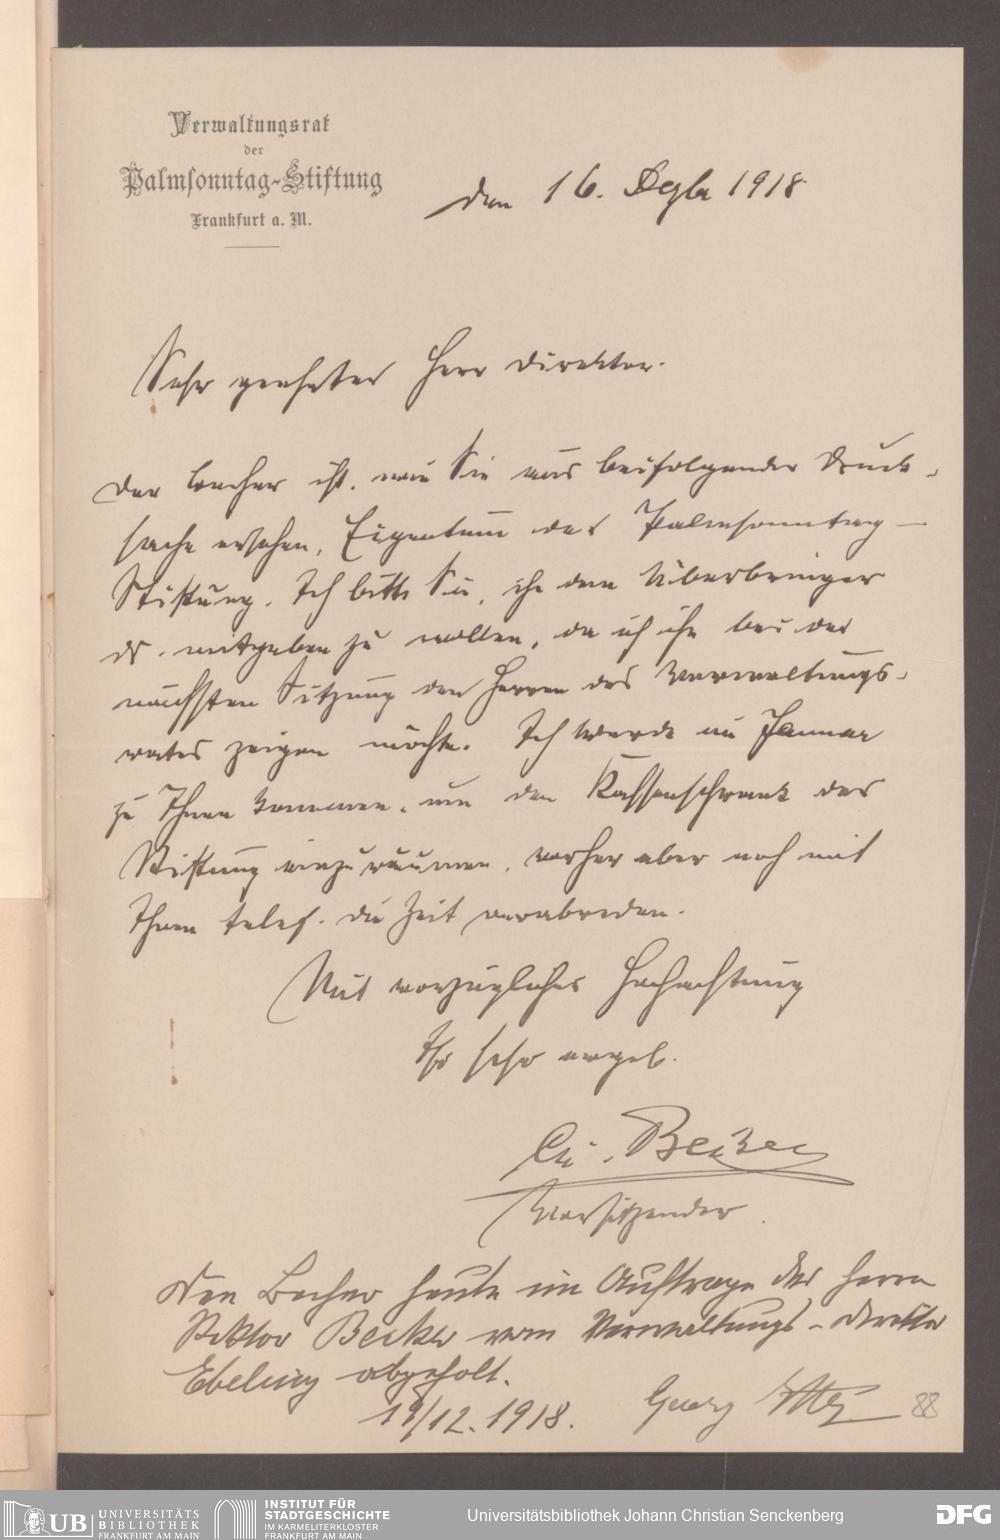 Verwaltungsrat
der
Palmsonntag-Stiftung
Frankfurt a. M.
den 16. Dezbr 1918
Sehr geehrter Herr Direktor.
Der Becher ist, wie Sie aus beifolgender Druck-
sache ersehen, Eigentum der Palmsonntag-
Stiftung. Ich bitte Sie, ihn dem Überbringer
ds. mitgeben zu wollen, da ich ihn bei der
nächsten Sitzung den Herren des Verwaltungs-
rates zeigen möchte. Ich werde im Januar
zu Ihnen kommen, um den Kassenschrank der
Stiftung einzuräumen, vorher aber noch mit
Ihnen telef. die Zeit verabreden.
Mit vorzüglicher Hochachtung
Ihr sehr ergeb.
Becker
Vorsitzender
Den Becher heute im Auftrage des Herrn
Rektor Becker vom Verwaltungs-Direktor
Ebeling abgeholt.
19/12. 1918. Georg
88
UB UNIVERSITÄTS
BIBLIOTHEK
FRANKFURT AM MAIN
INSTITUT FÜR
STADTGESCHICHTE
IM KARMELITERKLOSTER
FRANKFURT AM MAIN
Universitätsbibliothek Johann Christian Senckenberg
DFG